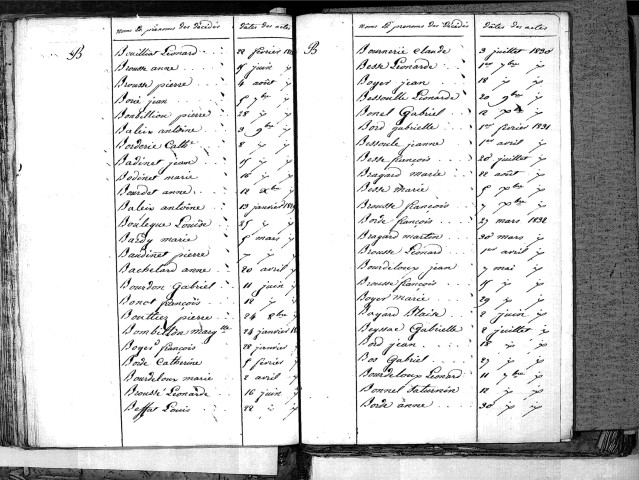 Noms et prénoms des décédés dâtes des actes
B
Bouilliat Léonard 28 février
Brousse anne juin
Brousse pierre 4 août
Borie jean 7bre
Bombillion pierre 28
Baleix antoine 3 9bre
Borderie Cathe 8
Badinet jean
Bodinet marie 16
Bourdet anne 12 Xbre
Baleix antoine 13 janvier
Boulegue Louise 25
Bardy marie mars
Baudinet pierre 7
Bachelard anne 20 avril
Bourdon Gabriel 11 juin
Bonot françois 12
Boutiez pierre 24 8bre
Bombillon marg 24 janvier
Boyer françois 28 janvier
Borde Catherine février
Bourdeloux marie 2 avril
Brousse Léonarde 16 juin
Beffat Louis 22
Noms et prénoms des décédés dâtes des actes
B
Bournerie claude 3 juillet 1830
Besse Léonarde 1er 7bre
Boyer jean 18
Bessoulle Léonarde 20 9bre
Bonet Gabriel 12
Bord gabrielle 1er février 1831
Bessoule jeanne 1er avril
Besse françois 20 juillet
Bragard marie 12 août
Besse marie
Brousse françois 7
Borde françois 27 mars 1832
Bragard martin 30 mars
Brousse Léonard 1er avril
Bourdeloux jean 7 mai
Brousse françois
Boyer marie 29
Bayard Blaise 2 juin
Beyssac Gabrielle 2 juillet
Bord jean 18
Bos Gabriel 27
Bourdeloux Léonard 11 7bre
Bonnel Saturnin 12
Borde anne 30